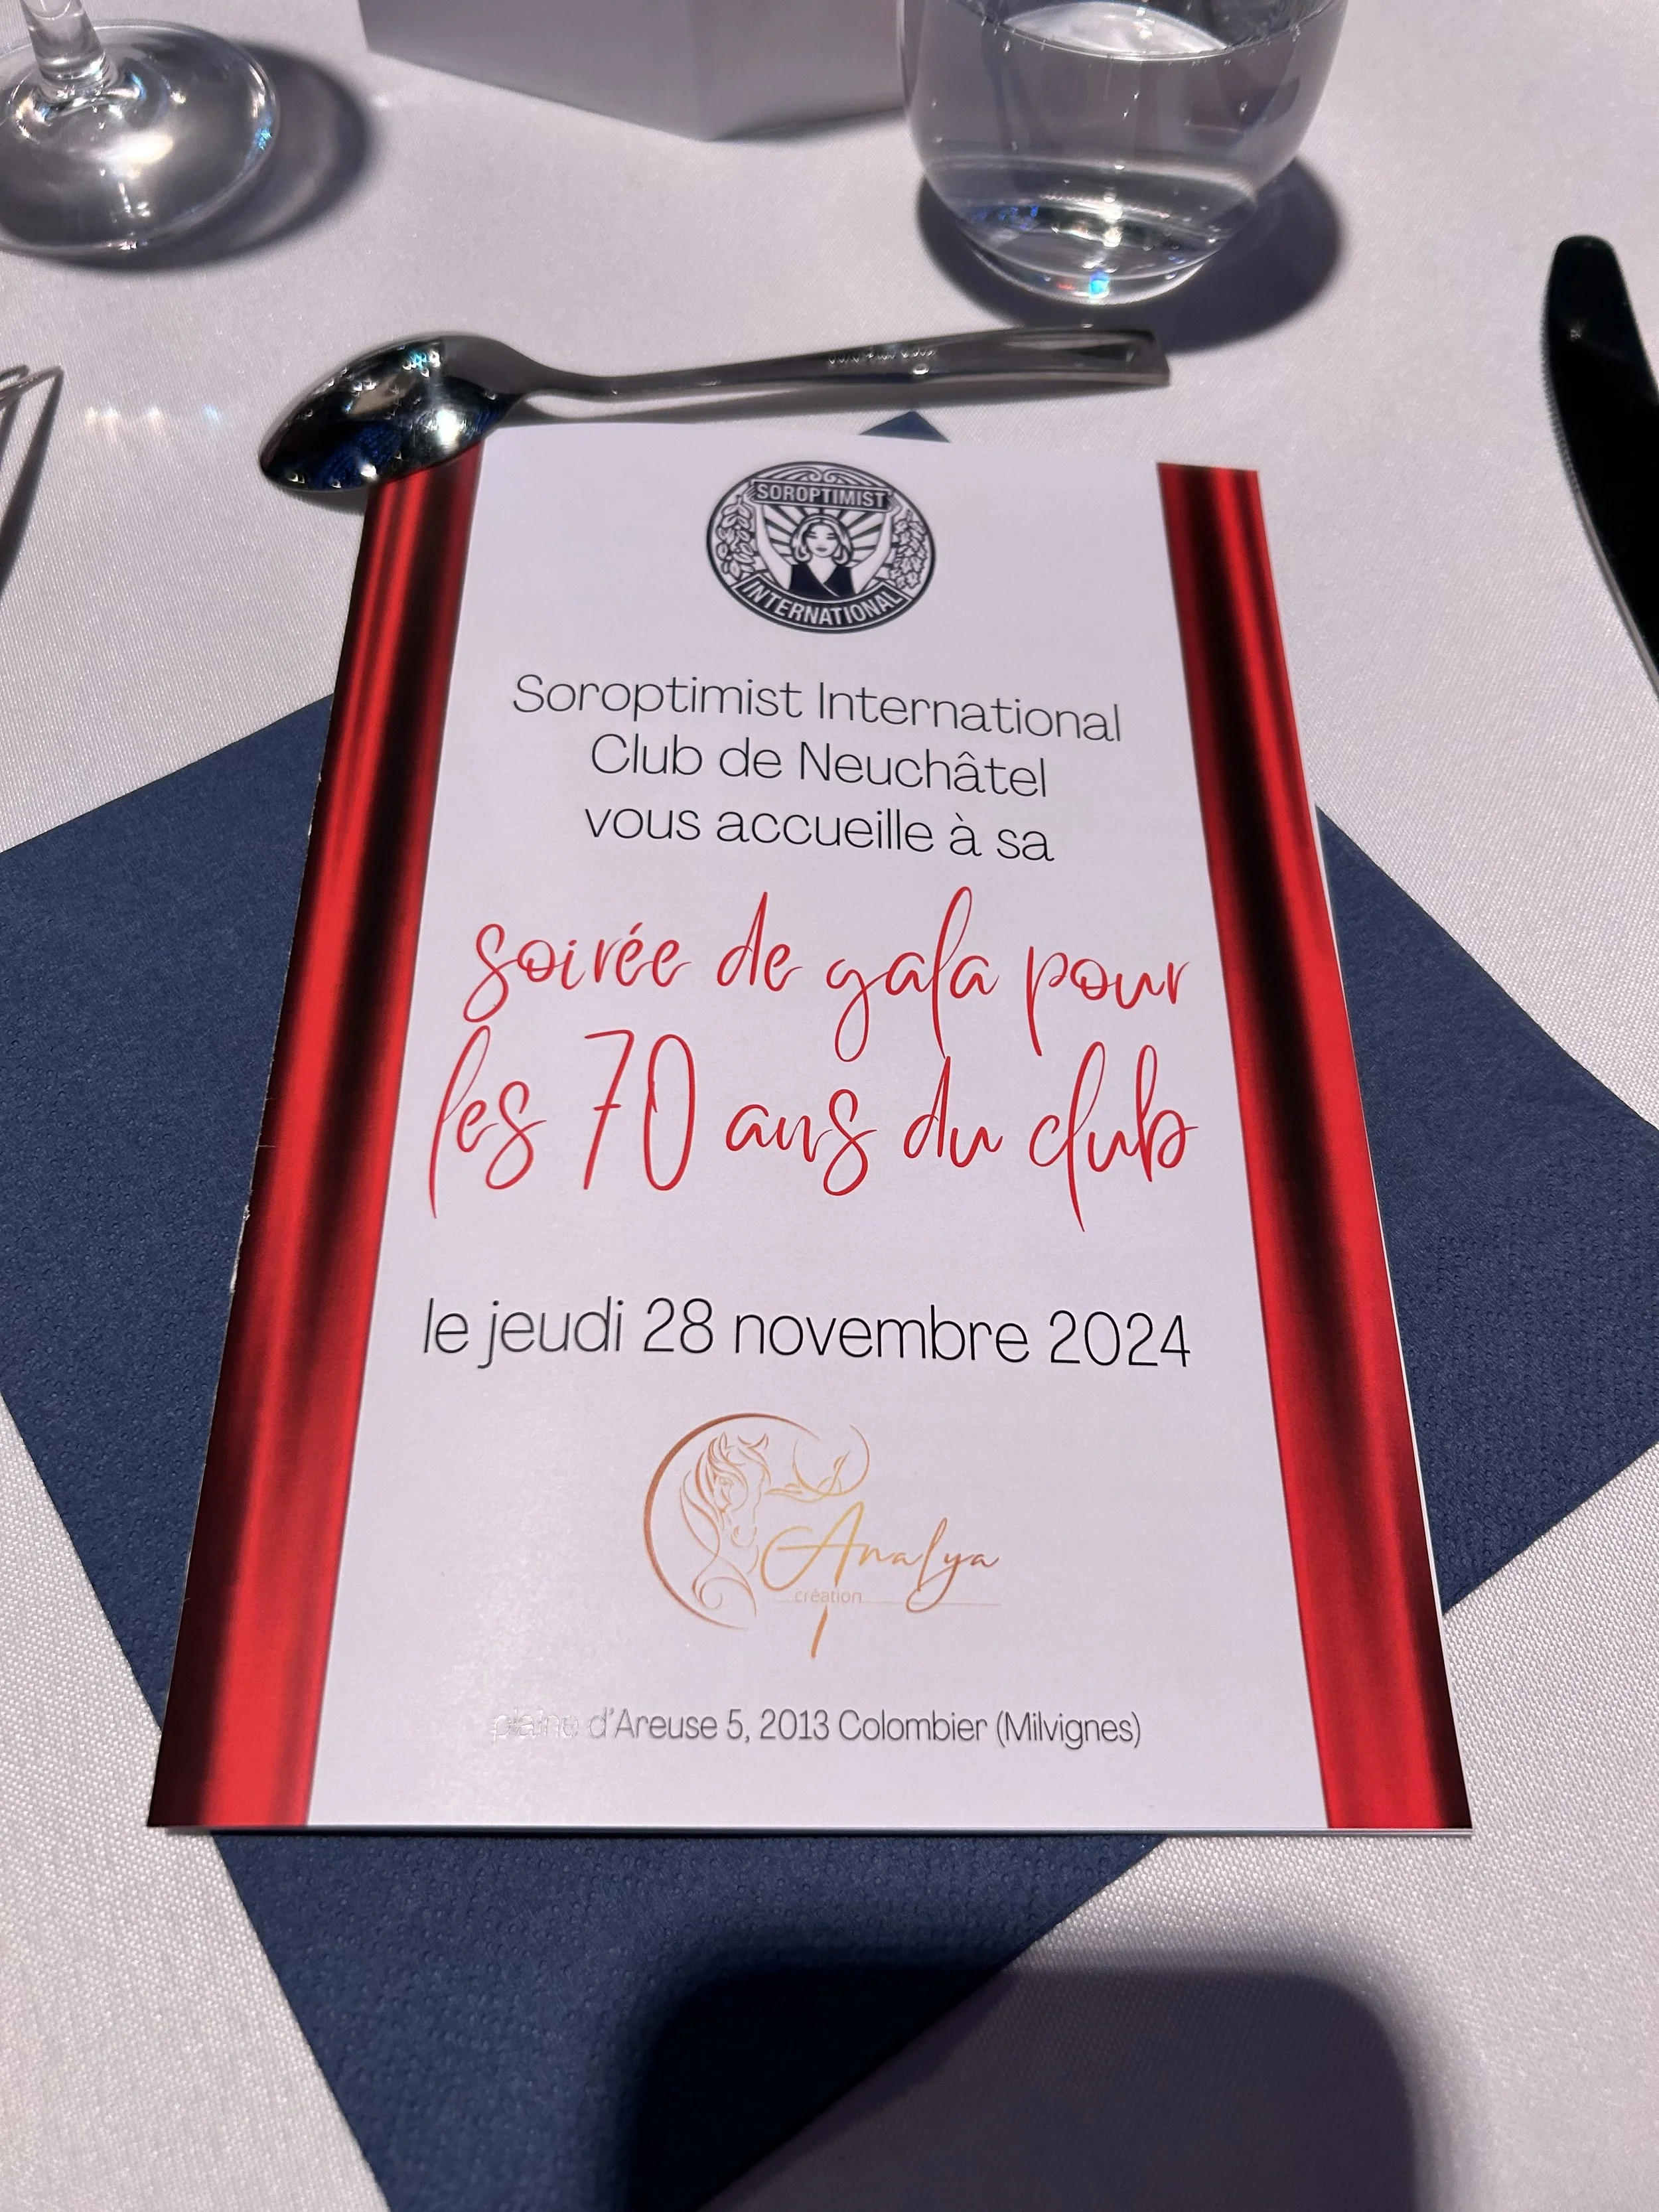 SOROPTIMIST
INTERNATIONAL
Soroptimist International
Club de Neuchâtel
vous accueille à sa
soirée de gala pour
les 70 ans du club
le jeudi 28 novembre 2024
Analya
création
plaine d'Areuse 5, 2013 Colombier (Milvignes)